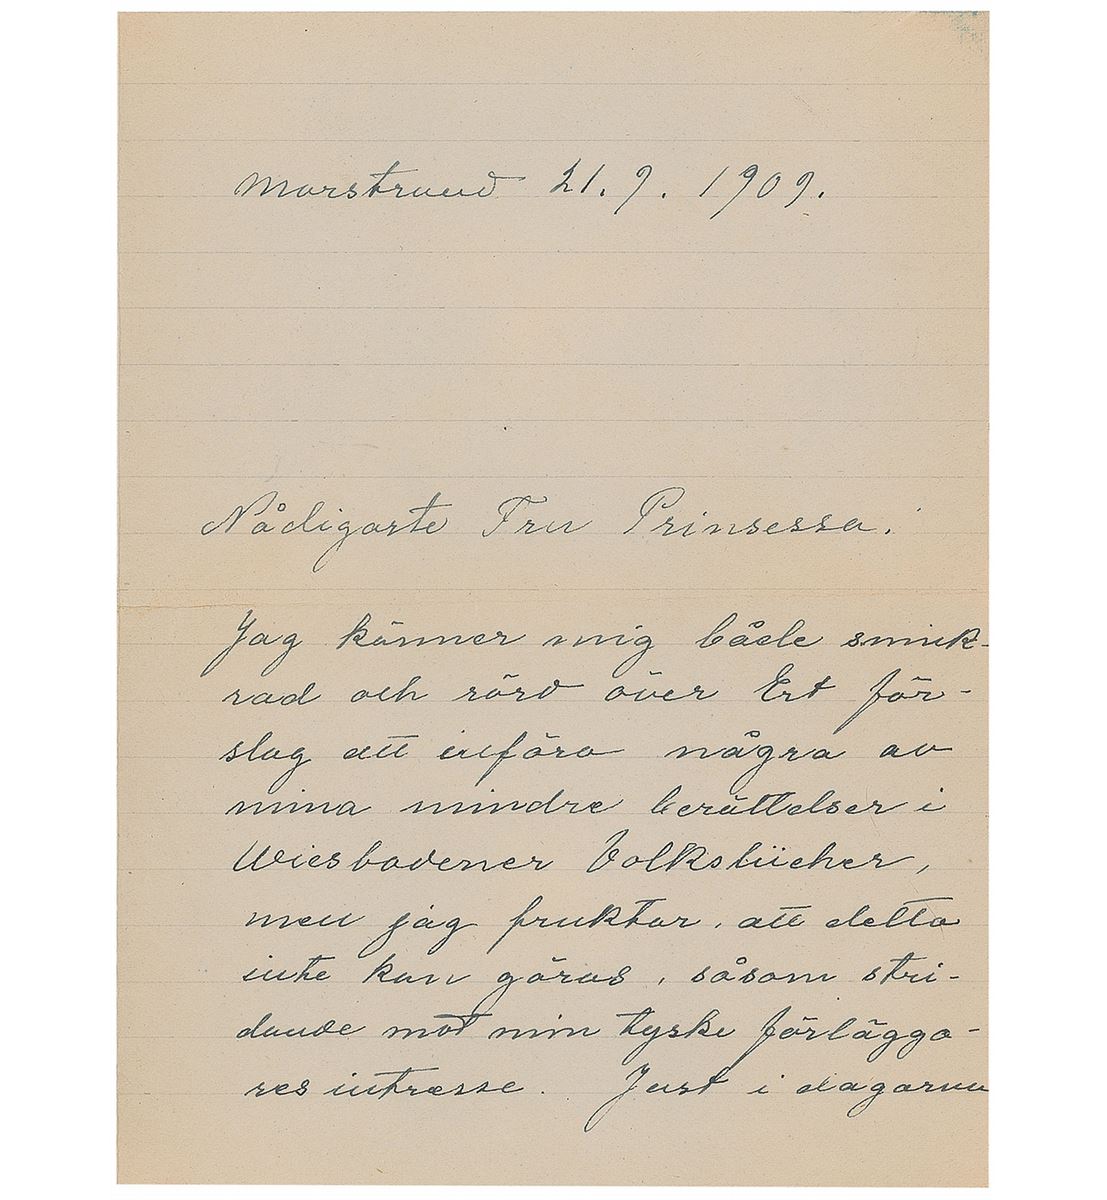 Marstrand 21. 9. 1909.
Nådigaste Fru Prinsessa.
Jag känner mig både smick-
rad och rörd över Ert för-
slag att införa några av
mina mindre berättelser i
Wiesbadener Volksbücher,
men jag fruktar, att detta
inte kan göras, såsom stri-
dande mot min tyske förlägga-
res intresse. Just i dagarna